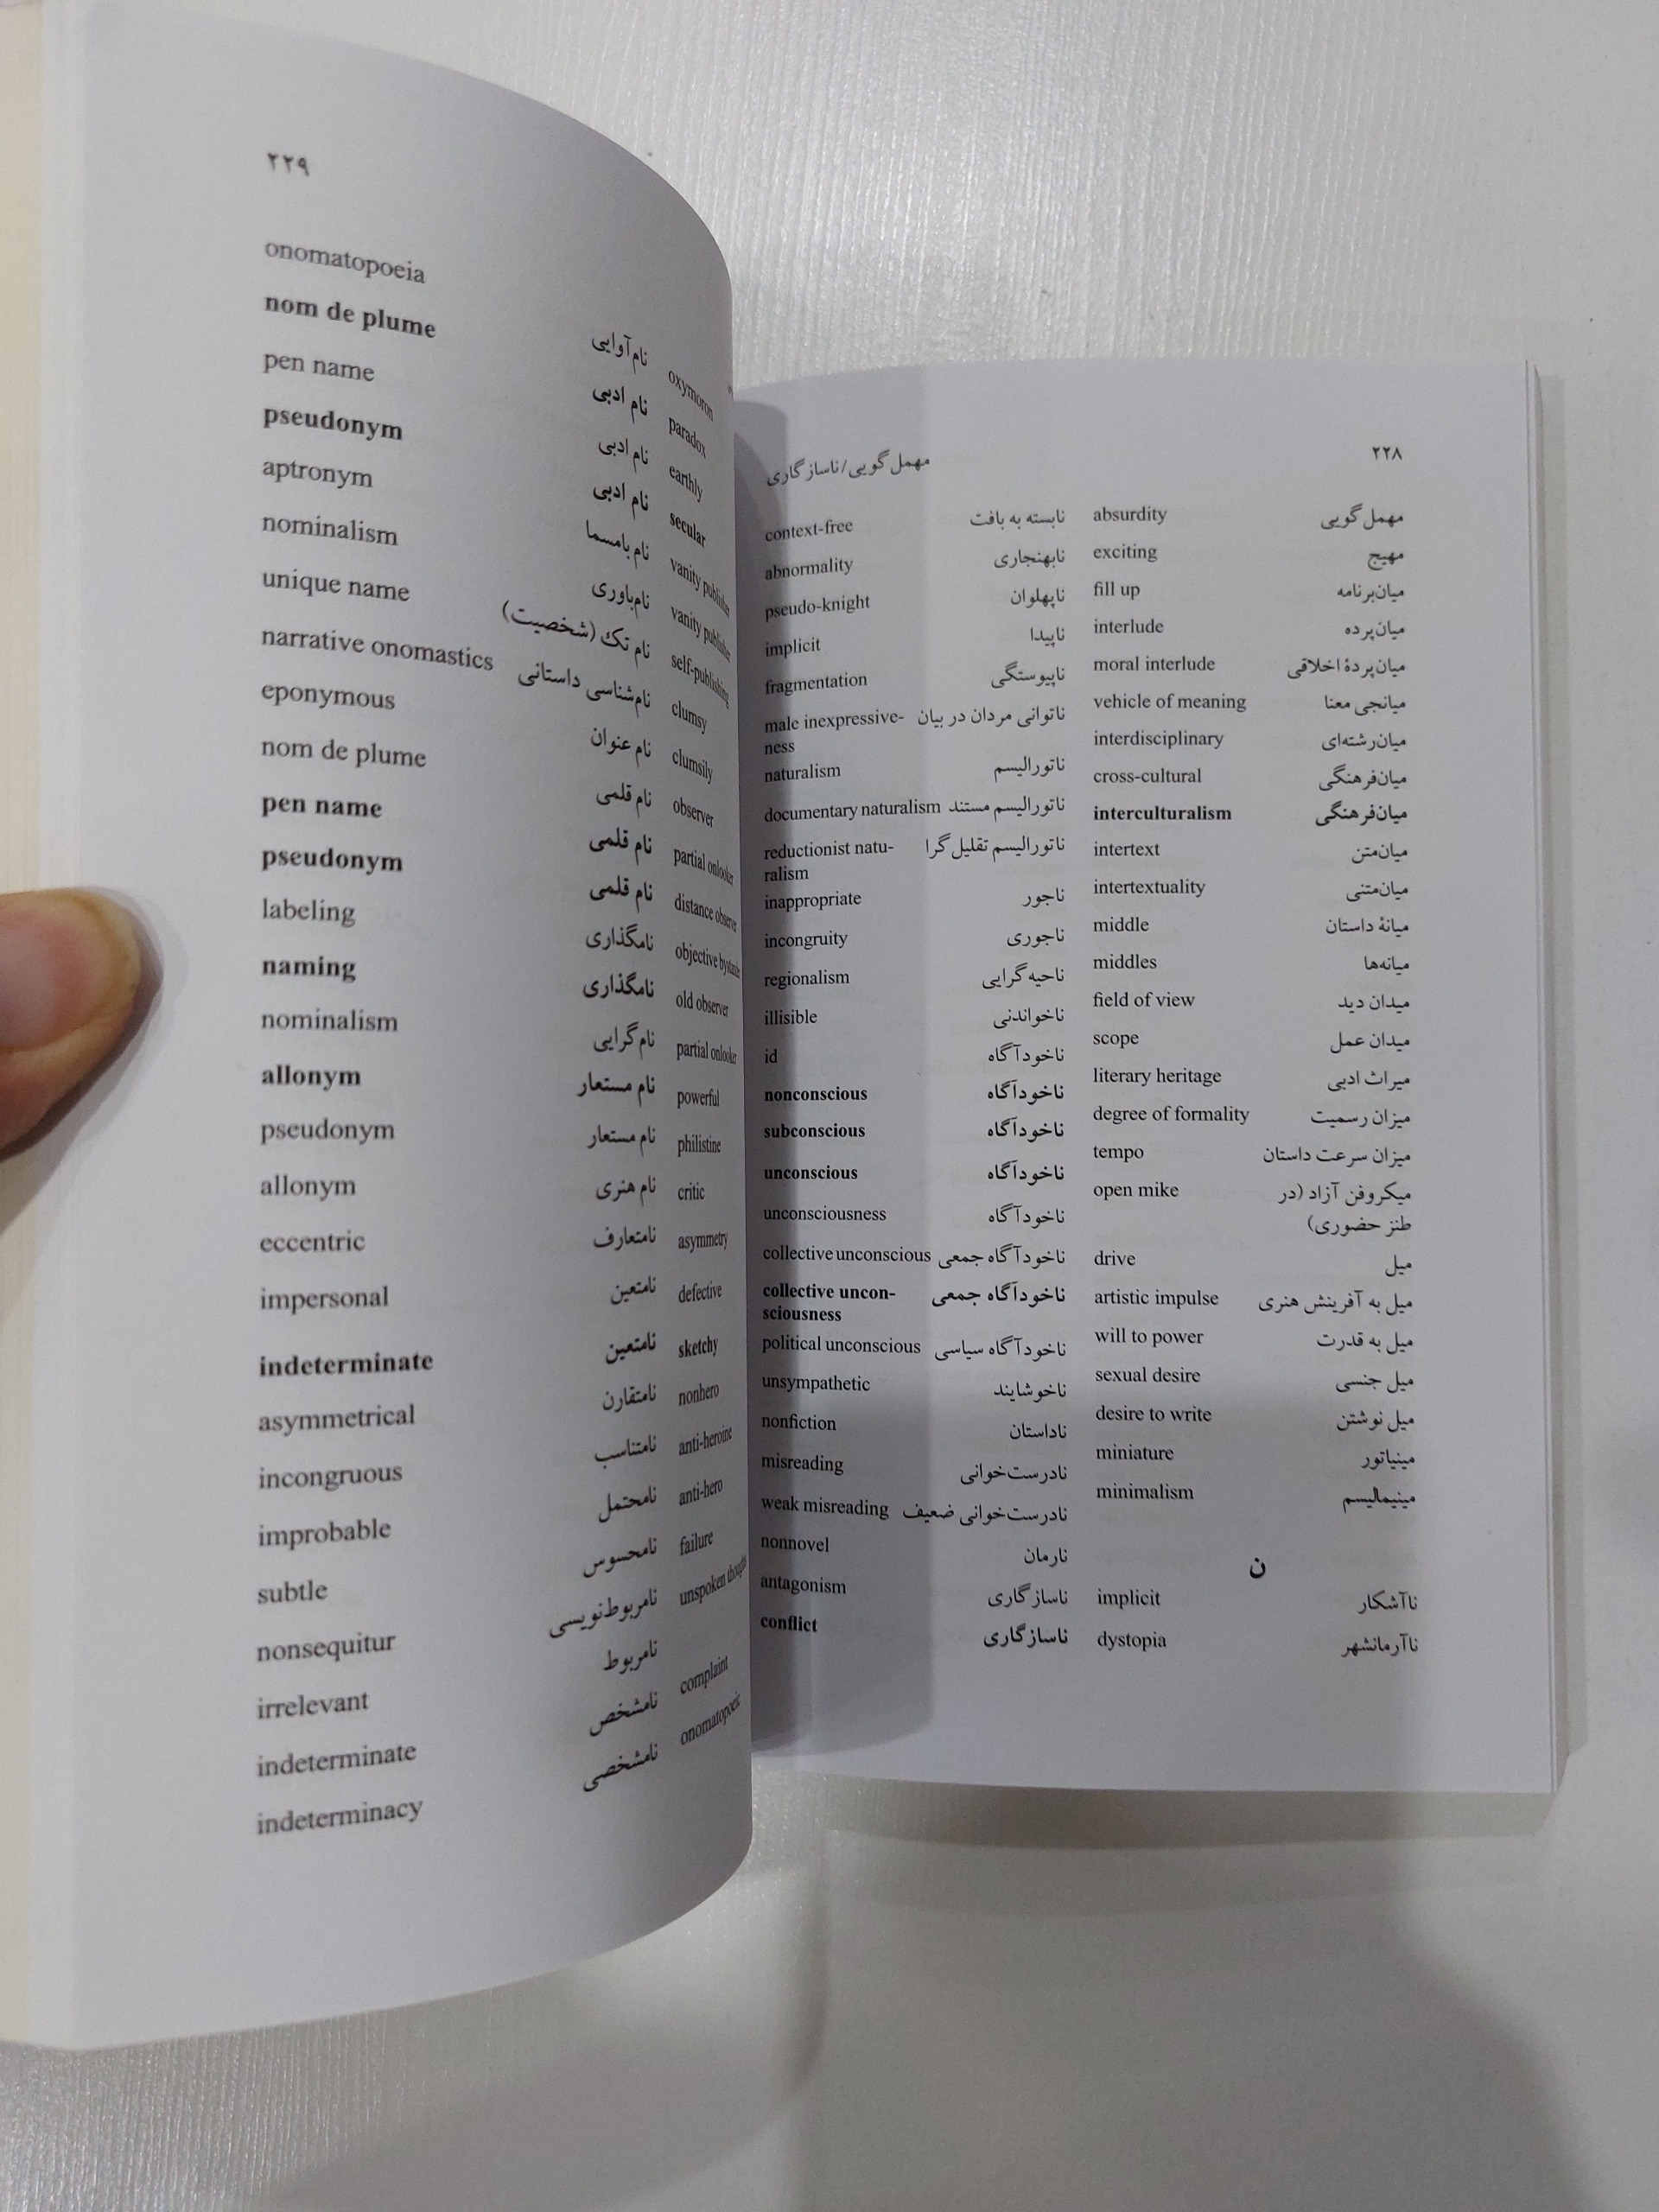 ۲۲۸
مهمل‌گویی/ناسازگاری
مهمل‌گویی absurdity
مهیج exciting
میان‌برنامه fill up
میان‌پرده interlude
میان‌پردهٔ اخلاقی moral interlude
میانجی معنا vehicle of meaning
میان‌رشته‌ای interdisciplinary
میان‌فرهنگی cross-cultural
میان‌فرهنگی interculturalism
میان‌متن intertext
میان‌متنی intertextuality
میانهٔ داستان middle
میانه‌ها middles
میدان دید field of view
میدان عمل scope
میراث ادبی literary heritage
میزان رسمیت degree of formality
میزان سرعت داستان tempo
میکروفن آزاد (در open mike
طنز حضوری)
میل drive
میل به آفرینش هنری artistic impulse
میل به قدرت will to power
میل جنسی sexual desire
میل نوشتن desire to write
مینیاتور miniature
مینیمالیسم minimalism
ن
ناآشکار implicit
ناآرمانشهر dystopia
نابسته به بافت context-free
نابهنجاری abnormality
ناپهلوان pseudo-knight
ناپیدا implicit
ناپیوستگی fragmentation
ناتوانی مردان در بیان male inexpressive-
ness
ناتورالیسم naturalism
ناتورالیسم مستند documentary naturalism
ناتورالیسم تقلیل‌گرا reductionist natu-
ralism
ناجور inappropriate
ناجوری incongruity
ناحیه‌گرایی regionalism
ناخواندنی illisible
ناخودآگاه id
ناخودآگاه nonconscious
ناخودآگاه subconscious
ناخودآگاه unconscious
ناخودآگاه unconsciousness
ناخودآگاه جمعی collective unconscious
ناخودآگاه جمعی collective uncon-
sciousness
ناخودآگاه سیاسی political unconscious
ناخوشایند unsympathetic
ناداستان nonfiction
نادرست‌خوانی misreading
نادرست‌خوانی ضعیف weak misreading
نارمان nonnovel
ناسازگاری antagonism
ناسازگاری conflict
۲۲۹
oxymoron
paradox
earthly
secular
vanity publisher
vanity publisher
self-publishing
clumsy
clumsily
observer
partial onlooker
distance observer
objective bystander
old observer
partial onlooker
powerful
philistine
critic
asymmetry
defective
sketchy
nonhero
anti-heroine
anti-hero
failure
unspoken thought
complaint
onomatopoeic
نام‌آوایی onomatopoeia
نام ادبی nom de plume
نام ادبی pen name
نام ادبی pseudonym
نام بامسما aptronym
نام‌باوری nominalism
نام تک (شخصیت) unique name
نام‌شناسی داستانی narrative onomastics
نام عنوان eponymous
نام قلمی nom de plume
نام قلمی pen name
نام قلمی pseudonym
نامگذاری labeling
نامگذاری naming
نام‌گرایی nominalism
نام مستعار allonym
نام مستعار pseudonym
نام هنری allonym
نامتعارف eccentric
نامتعین impersonal
نامتعین indeterminate
نامتقارن asymmetrical
نامتناسب incongruous
نامحتمل improbable
نامحسوس subtle
نامربوط‌نویسی nonsequitur
نامربوط irrelevant
نامشخص indeterminate
نامشخصی indeterminacy